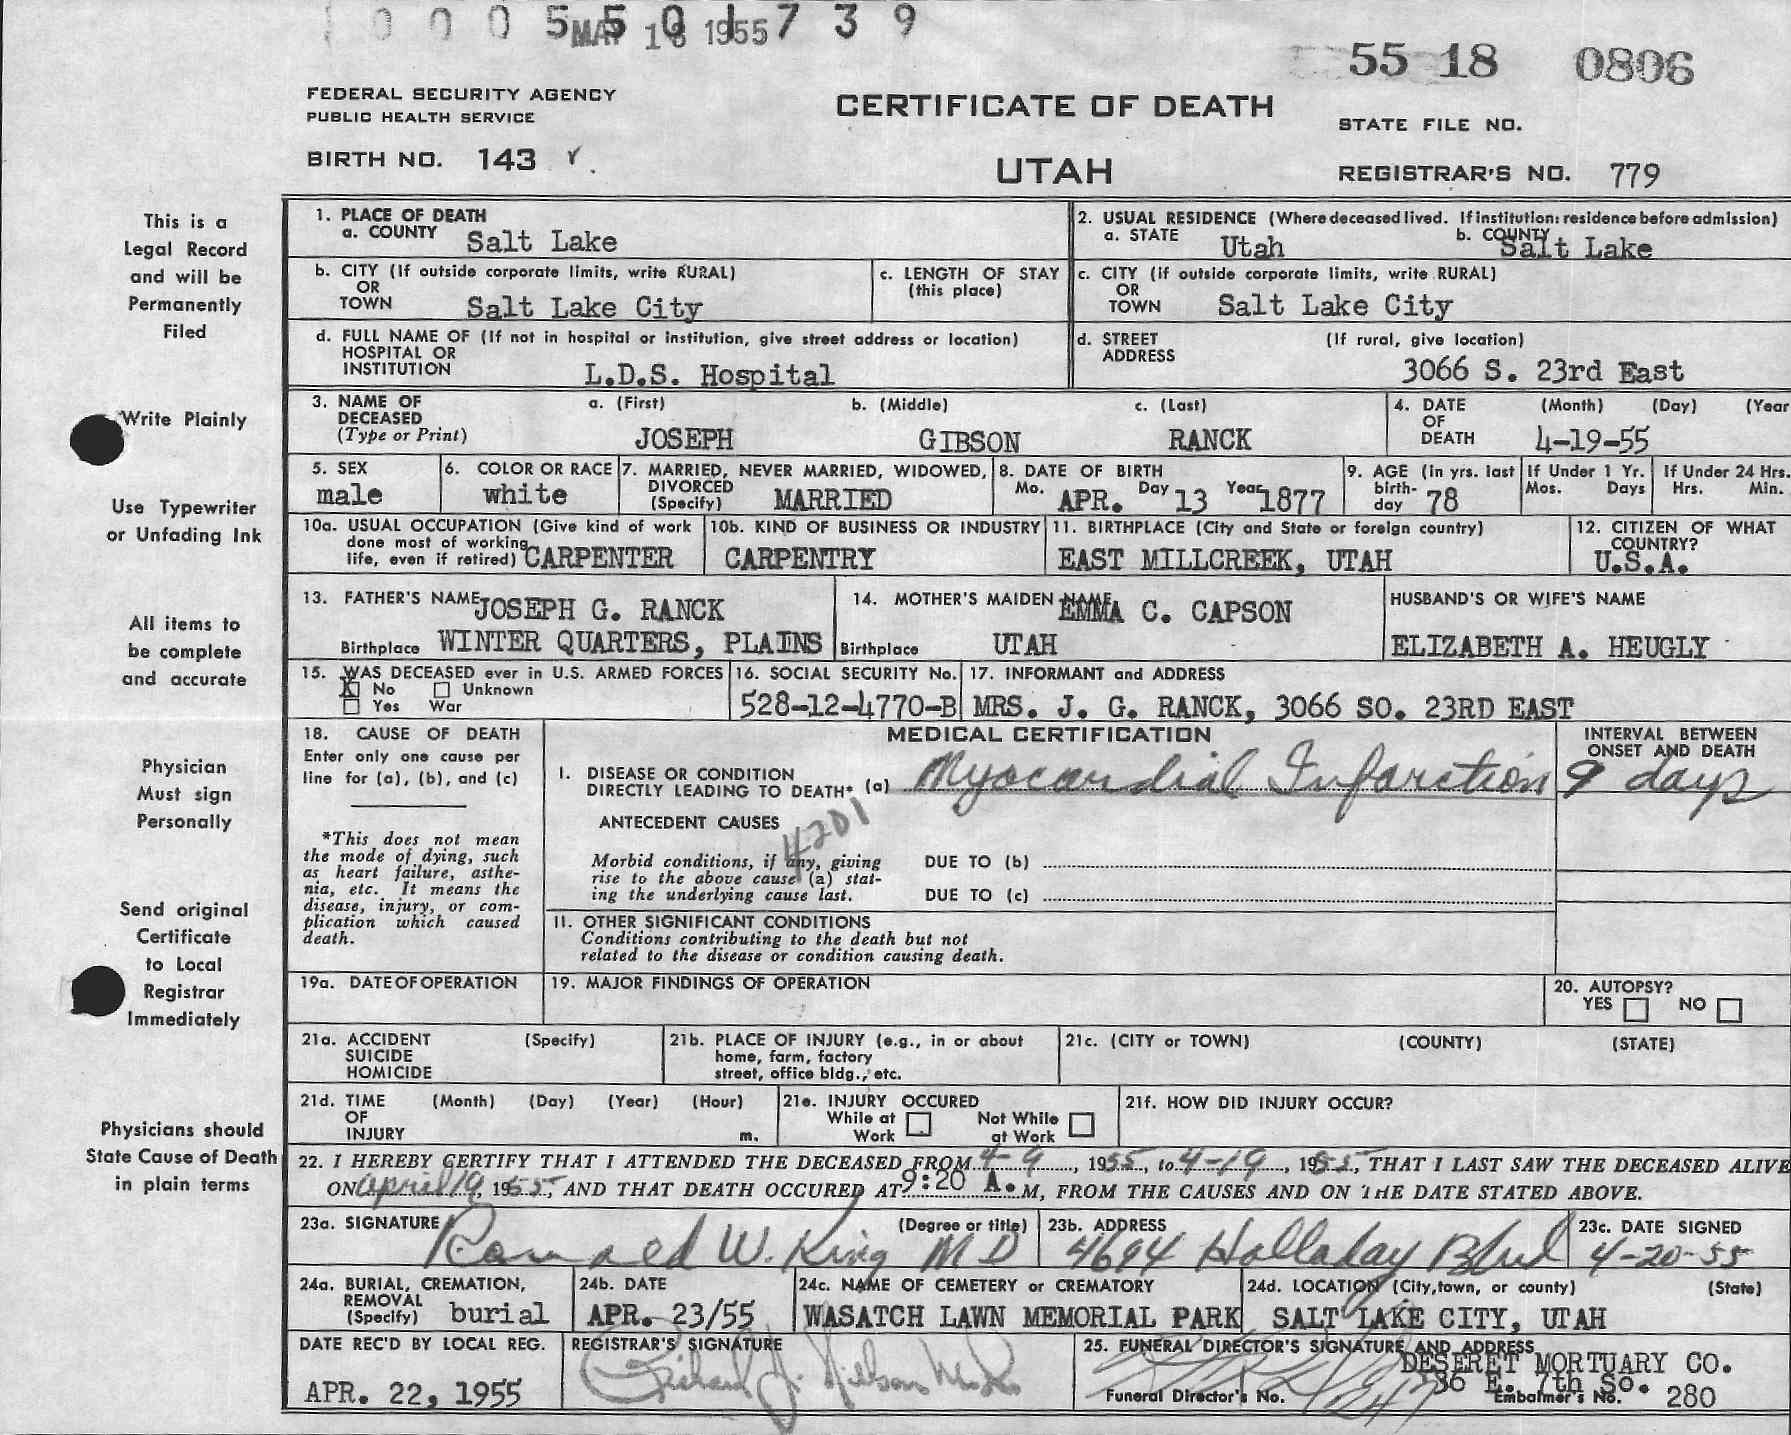 1 0 0 0 5 5 0 1 7 3 9
MAY 18 1955
55 18 0806
FEDERAL SECURITY AGENCY
PUBLIC HEALTH SERVICE
CERTIFICATE OF DEATH
STATE FILE NO.
BIRTH NO. 143
UTAH
REGISTRAR'S NO. 779
This is a
Legal Record
and will be
Permanently
Filed
Write Plainly
Use Typewriter
or Unfading Ink
All items to
be complete
and accurate
Physician
Must sign
Personally
Send original
Certificate
to Local
Registrar
Immediately
Physicians should
State Cause of Death
in plain terms
1. PLACE OF DEATH
a. COUNTY Salt Lake
2. USUAL RESIDENCE (Where deceased lived. If institution: residence before admission)
a. STATE Utah b. COUNTY Salt Lake
b. CITY (If outside corporate limits, write RURAL)
OR
TOWN Salt Lake City
c. LENGTH OF STAY
(this place)
c. CITY (if outside corporate limits, write RURAL)
OR
TOWN Salt Lake City
d. FULL NAME OF (If not in hospital or institution, give street address or location)
HOSPITAL OR
INSTITUTION L.D.S. Hospital
d. STREET (If rural, give location)
ADDRESS 3066 S. 23rd East
3. NAME OF DECEASED (Type or Print)
a. (First) b. (Middle) c. (Last)
JOSEPH GIBSON RANCK
4. DATE OF DEATH (Month) (Day) (Year
4-19-55
5. SEX
male
6. COLOR OR RACE
white
7. MARRIED, NEVER MARRIED, WIDOWED,
DIVORCED
(Specify) MARRIED
8. DATE OF BIRTH
Mo. APR. Day 13 Year 1877
9. AGE (In yrs. last
birth-
day 78
If Under 1 Yr.
Mos. Days
If Under 24 Hrs.
Hrs. Min.
10a. USUAL OCCUPATION (Give kind of work
done most of working
life, even if retired) CARPENTER
10b. KIND OF BUSINESS OR INDUSTRY
CARPENTRY
11. BIRTHPLACE (City and State or foreign country)
EAST MILLCREEK, UTAH
12. CITIZEN OF WHAT
COUNTRY?
U.S.A.
13. FATHER'S NAME JOSEPH G. RANCK
Birthplace WINTER QUARTERS, PLAINS
14. MOTHER'S MAIDEN NAME EMMA C. CAPSON
Birthplace UTAH
HUSBAND'S OR WIFE'S NAME
ELIZABETH A. HEUGLY
15. WAS DECEASED ever in U.S. ARMED FORCES
X No Unknown
Yes War
16. SOCIAL SECURITY No.
528-12-4770-B
17. INFORMANT and ADDRESS
MRS. J. G. RANCK, 3066 SO. 23RD EAST
18. CAUSE OF DEATH
Enter only one cause per
line for (a), (b), and (c)
*This does not mean
the mode of dying, such
as heart failure, asthe-
nia, etc. It means the
disease, injury, or com-
plication which caused
death.
MEDICAL CERTIFICATION
INTERVAL BETWEEN
ONSET AND DEATH
I. DISEASE OR CONDITION
DIRECTLY LEADING TO DEATH* (a) Myocardial Infarction 9 days
ANTECEDENT CAUSES
4201
Morbid conditions, if any, giving
rise to the above cause (a) stat-
ing the underlying cause last.
DUE TO (b)
DUE TO (c)
II. OTHER SIGNIFICANT CONDITIONS
Conditions contributing to the death but not
related to the disease or condition causing death.
19a. DATE OF OPERATION
19. MAJOR FINDINGS OF OPERATION
20. AUTOPSY?
YES NO
21a. ACCIDENT (Specify)
SUICIDE
HOMICIDE
21b. PLACE OF INJURY (e.g., in or about
home, farm, factory
street, office bldg., etc.
21c. (CITY or TOWN) (COUNTY) (STATE)
21d. TIME (Month) (Day) (Year) (Hour)
OF
INJURY m.
21e. INJURY OCCURED
While at Work
Not While at Work
21f. HOW DID INJURY OCCUR?
22. I HEREBY CERTIFY THAT I ATTENDED THE DECEASED FROM 4-9, 1955, to 4-19, 1955, THAT I LAST SAW THE DECEASED ALIVE
ON April 19, 1955, AND THAT DEATH OCCURED AT 9:20 A.M, FROM THE CAUSES AND ON THE DATE STATED ABOVE.
23a. SIGNATURE (Degree or title)
Ronald W. King M D
23b. ADDRESS
4694 Holladay Blvd
23c. DATE SIGNED
4-20-55
24a. BURIAL, CREMATION,
REMOVAL
(Specify) burial
24b. DATE
APR. 23/55
24c. NAME OF CEMETERY or CREMATORY
WASATCH LAWN MEMORIAL PARK
24d. LOCATION (City, town, or county) (State)
SALT LAKE CITY, UTAH
DATE REC'D BY LOCAL REG.
APR. 22, 1955
REGISTRAR'S SIGNATURE
25. FUNERAL DIRECTOR'S SIGNATURE AND ADDRESS
DESERET MORTUARY CO.
36 E. 7th So.
Funeral Director's No. 1247
Embalmer's No. 280